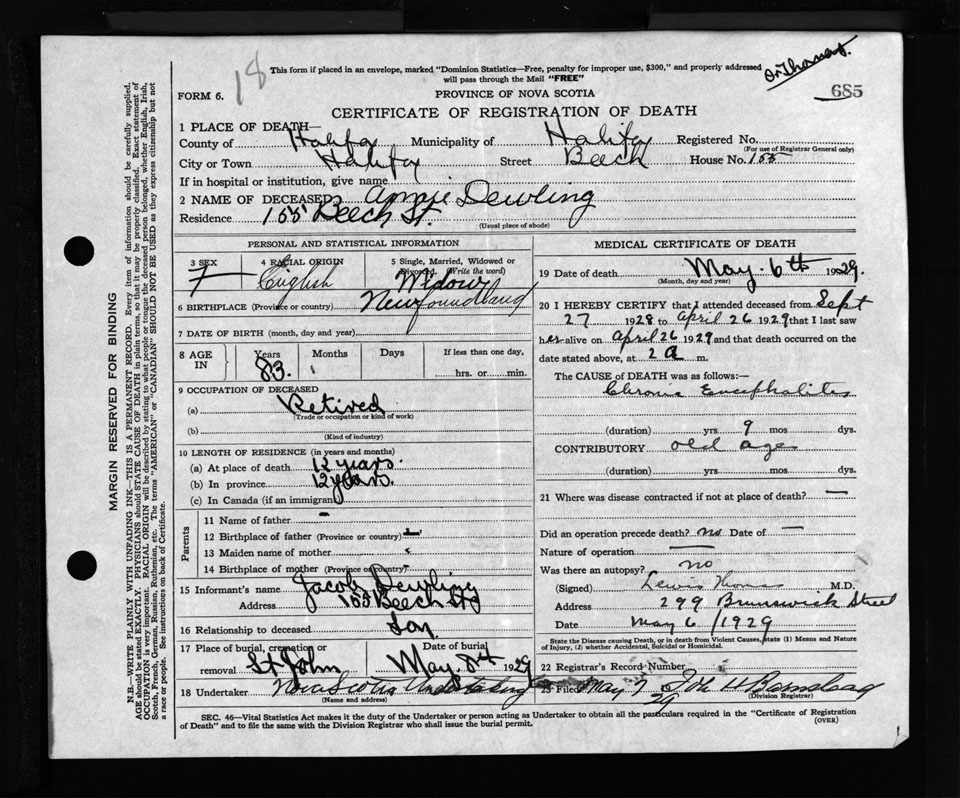 18
This form if placed in an envelope, marked "Dominion Statistics—Free, penalty for improper use, $300," and properly addressed
will pass through the Mail "FREE"
Dr Thomas.
FORM 6.
PROVINCE OF NOVA SCOTIA
685
CERTIFICATE OF REGISTRATION OF DEATH
1 PLACE OF DEATH—
County of Halifax Municipality of Halifax Registered No.
(For use of Registrar General only)
City or Town Halifax Street Beech House No. 155
If in hospital or institution, give name
2 NAME OF DECEASED Annie Dewling
Residence 155 Beech St.
(Usual place of abode)
PERSONAL AND STATISTICAL INFORMATION
3 SEX
F
4 RACIAL ORIGIN
English
5 Single, Married, Widowed or
Divorced. (Write the word)
Widow
6 BIRTHPLACE (Province or country) Newfoundland
7 DATE OF BIRTH (month, day and year)
8 AGE IN
Years
83.
Months
Days
If less than one day,
hrs. or min.
9 OCCUPATION OF DECEASED
(a) Retired
(Trade or occupation or kind of work)
(b)
(Kind of industry)
10 LENGTH OF RESIDENCE (in years and months)
(a) At place of death 12 years.
(b) In province 12 years.
(c) In Canada (if an immigrant)
Parents
11 Name of father -
12 Birthplace of father (Province or country)
13 Maiden name of mother
14 Birthplace of mother (Province or country)
15 Informant's name Jacob Dewling
Address 155 Beech St
16 Relationship to deceased Son.
17 Place of burial, cremation or
removal St John
Date of burial
May. 8th 1929
18 Undertaker Nova Scotia Undertaking
(Name and address)
MEDICAL CERTIFICATE OF DEATH
19 Date of death May. 6th 1929.
(Month, day and year)
20 I HEREBY CERTIFY that I attended deceased from Sept
27 1928 to April 26 1929 that I last saw
her alive on April 26 1929 and that death occurred on the
date stated above, at 2 a m.
The CAUSE of DEATH was as follows:—
Chronic Encephalitis
(duration) yrs 9 mos dys.
CONTRIBUTORY old age
(duration) yrs mos dys.
21 Where was disease contracted if not at place of death? —
Did an operation precede death? no Date of —
Nature of operation —
Was there an autopsy? no
(Signed) Lewis Thomas M.D.
Address 299 Brunswick Street
Date May 6 / 1929
State the Disease causing Death, or in death from Violent Causes, state (1) Means and Nature
of Injury, (ii) whether Accidental, Suicidal or Homicidal.
22 Registrar's Record Number
23 Filed May 7
29
(Division Registrar)
SEC. 46—Vital Statistics Act makes it the duty of the Undertaker or person acting as Undertaker to obtain all the particulars required in the "Certificate of Registration
of Death" and to file the same with the Division Registrar who shall issue the burial permit.
(OVER)
MARGIN RESERVED FOR BINDING
N.B.—WRITE PLAINLY WITH UNFADING INK—THIS IS A PERMANENT RECORD. Every item of information should be carefully supplied.
AGE should be stated EXACTLY. PHYSICIANS should STATE CAUSE OF DEATH in plain terms, so that it may be properly classified. Exact statement of
OCCUPATION is very important. RACIAL ORIGIN will be described by stating to what people or tongue the deceased person belonged, whether English, Irish,
Scotch, French, German, Russian, Ruthenian, etc. The terms "AMERICAN" or "CANADIAN" SHOULD NOT BE USED as they express citizenship but not
a race or people. See instructions on back of Certificate.